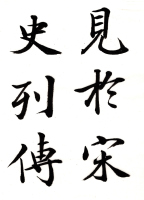 見於宋
史列傳